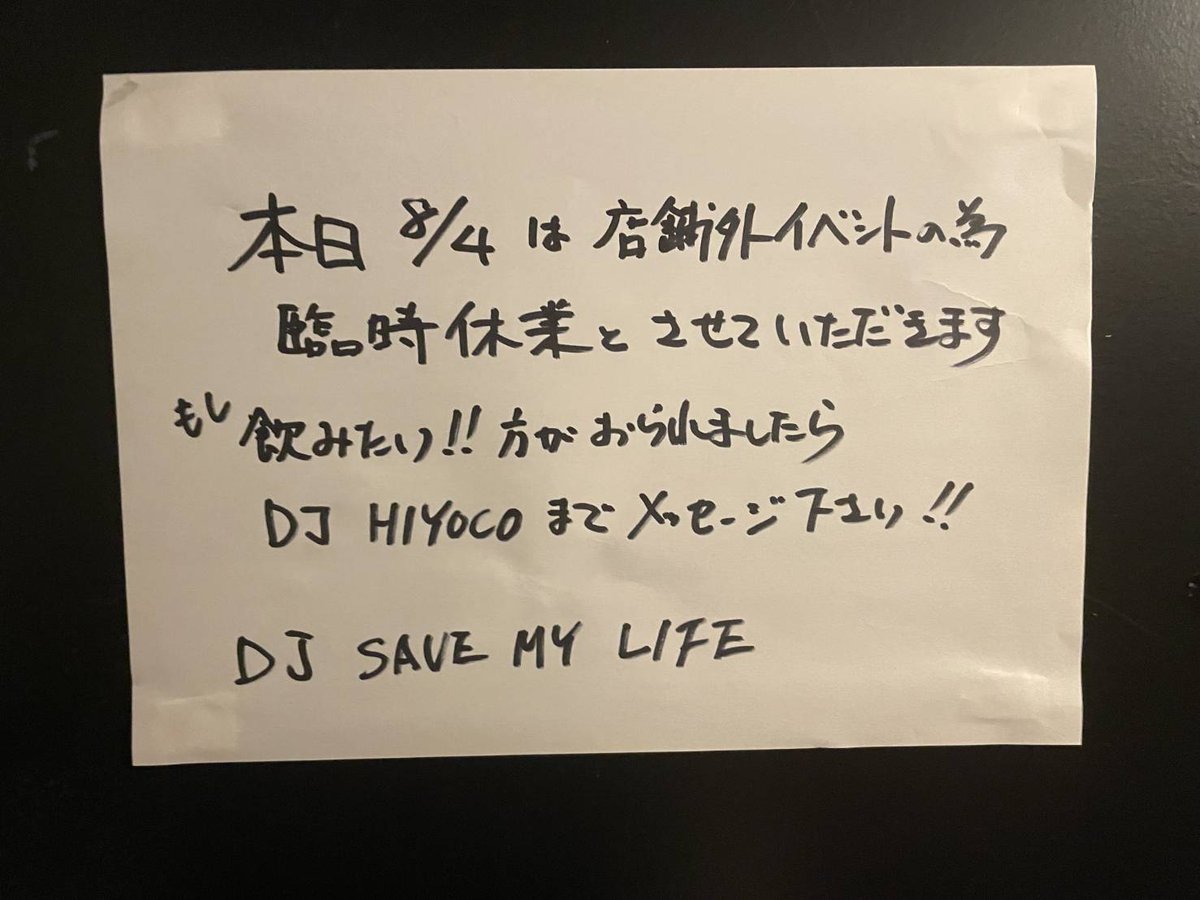 本日 8/4 は 店舗外イベントの為
臨時休業とさせていただきます
もし飲みたい!!方がおられましたら
DJ HIYOCO までメッセージ下さい!!
DJ SAVE MY LIFE